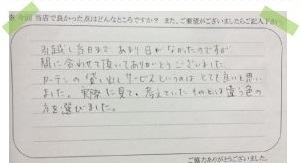 今回 当店で良かった点はどんなところですか？ また、ご要望がございましたらご記入下さい
引越し当日まで あまり日がなかったのですが
間に合わせて頂いてありがとうございました
カーテンの貸し出しサービスというのは とても良いと思い
ました。実際に見て。考えていたものとは違う色の
方を選びました。
ご協力ありがとうございました。